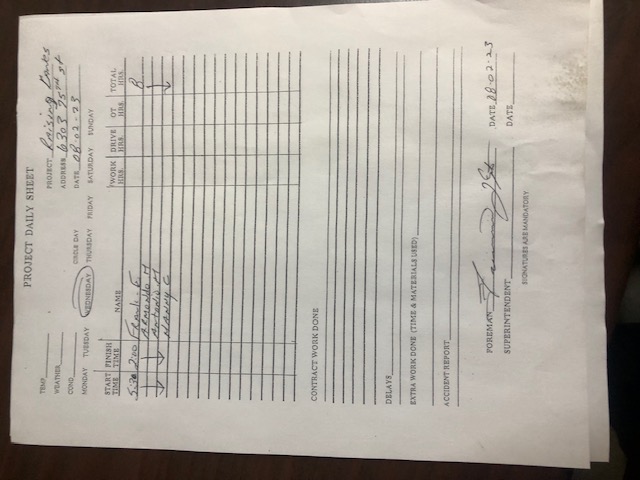 PROJECT DAILY SHEET
TEMP
PROJECT Raising Canes
WEATHER
ADDRESS 6303 75th st
COND.
CIRCLE DAY
DATE 08-02-23
MONDAY TUESDAY WEDNESDAY THURSDAY FRIDAY SATURDAY SUNDAY
START TIME FINISH TIME NAME WORK HRS. DRIVE HRS. OT HRS. TOTAL HRS.
5:30 2:00 Frank. E. 8
ARMONDO M
Antonio M
MANNY C
CONTRACT WORK DONE
DELAYS
EXTRA WORK DONE (TIME & MATERIALS USED)
ACCIDENT REPORT
FOREMAN DATE 08-02-23
SUPERINTENDENT DATE
SIGNATURES ARE MANDATORY